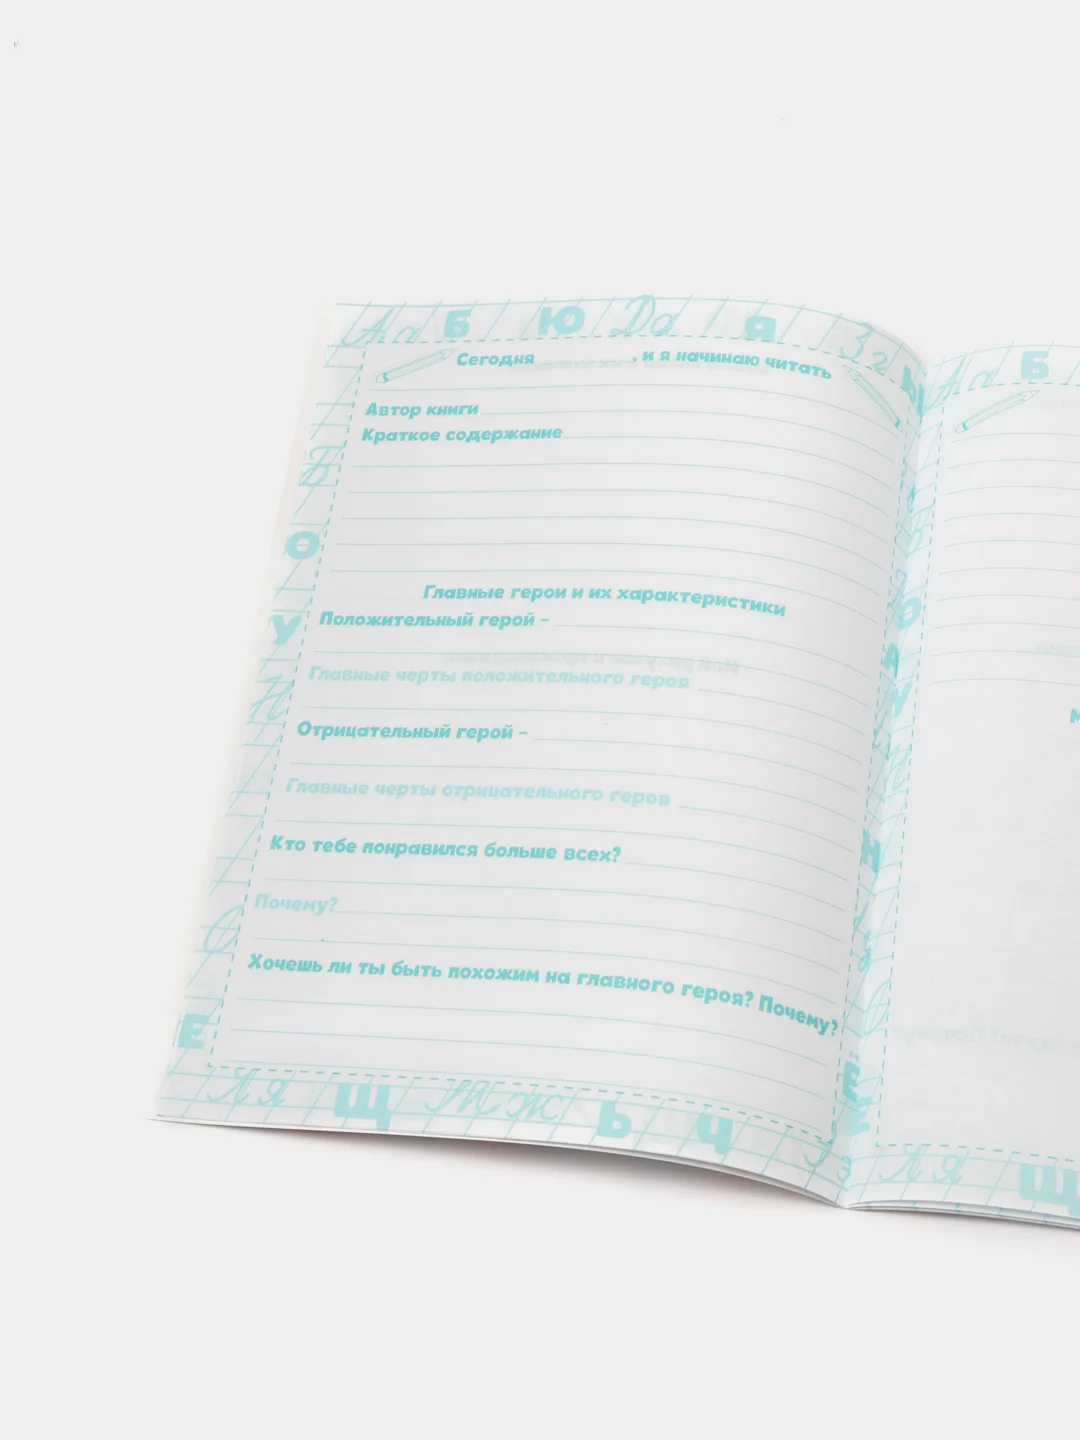 Аа Б Ю Да Я Зз Ы
Сегодня ________, и я начинаю читать
Автор книги
Краткое содержание
Главные герои и их характеристики
Положительный герой –
Главные черты положительного героя
Отрицательный герой –
Главные черты отрицательного героя
Кто тебе понравился больше всех?
Почему?
Хочешь ли ты быть похожим на главного героя? Почему?
Б
О
У
Н
О
Е
Ля Щ Ж Ж Ь Ч
Аа Б
О
А
У
Н
у
Ё
Е
Ля Щ